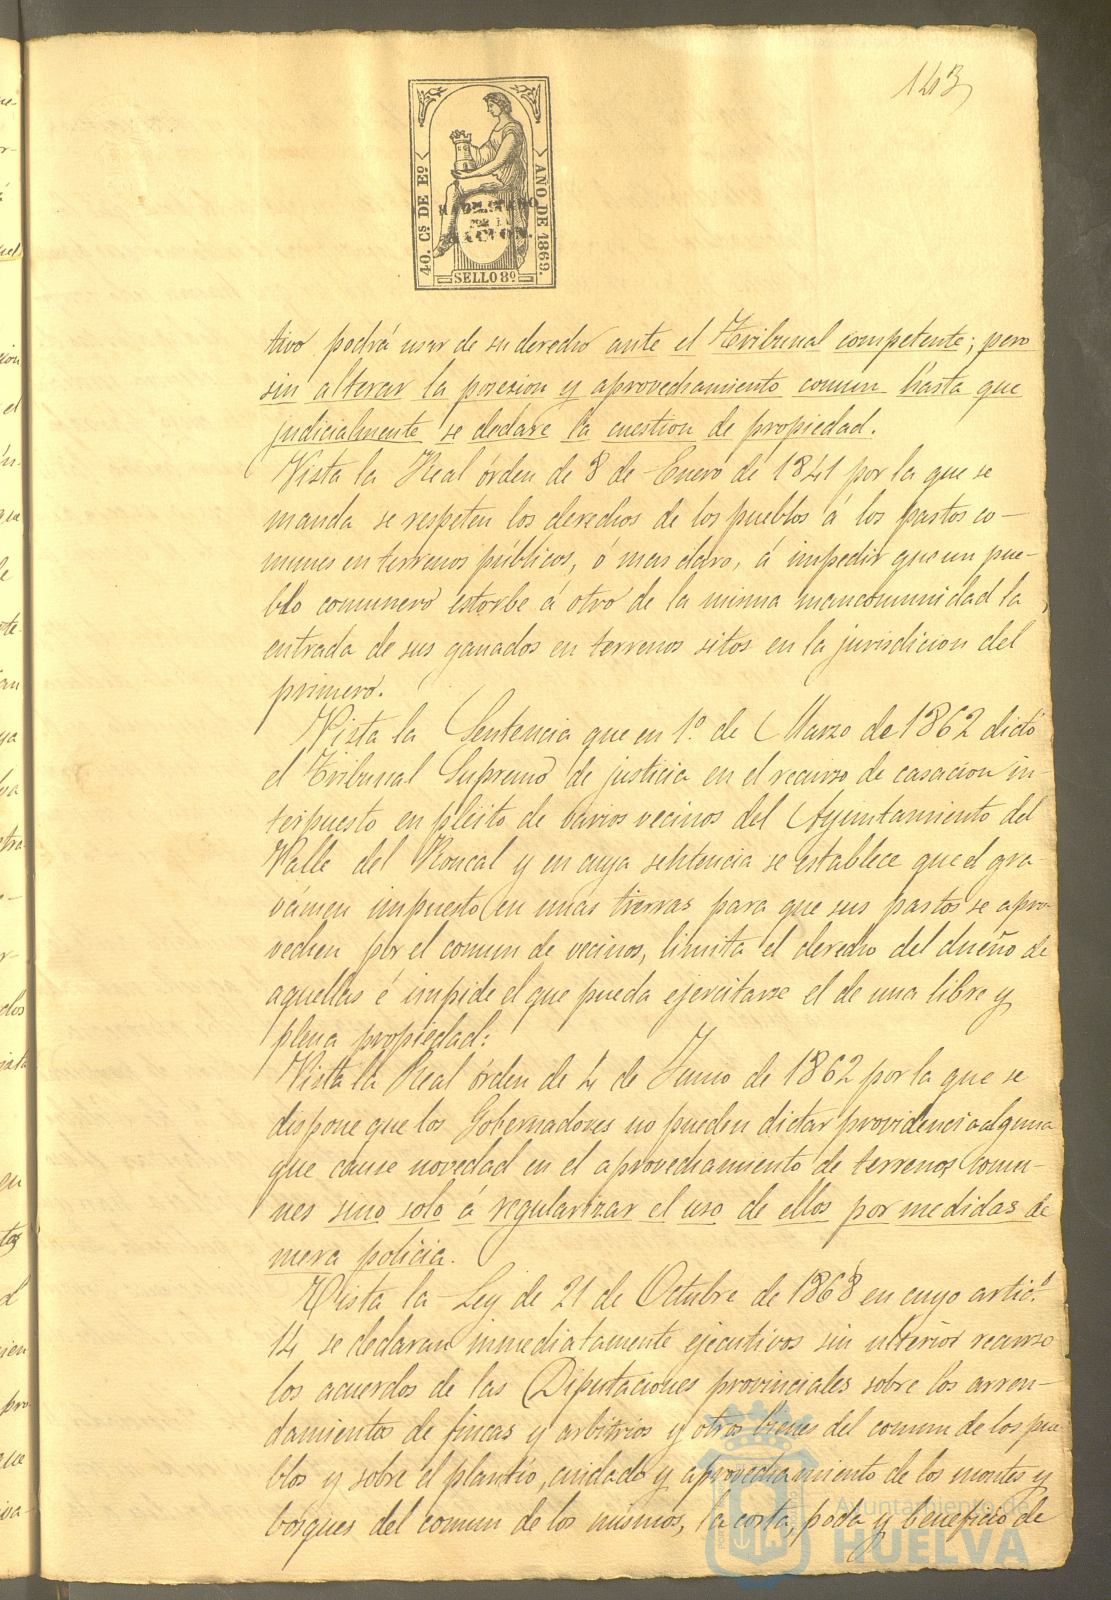 143
40. Cs DE Eo
AÑO DE 1869.
HABILITADO
POR LA
NACION.
SELLO 8º
tivo podrá usar de su derecho ante el Tribunal competente; pero
sin alterar la posesion y aprovechamiento comun hasta que
judicialmente se declare la cuestion de propiedad.
Vista la Real órden de 8 de Enero de 1841 por la que se
manda se respeten los derechos de los pueblos á los pastos co-
munes en terrenos públicos, ó mas claro, á impedir que un pue-
blo comunero estorbe á otro de la misma mancomunidad la
entrada de sus ganados en terrenos sitos en la jurisdicion del
primero.
Vista la Sentencia que en 1º. de Marzo de 1862 dictó
el Tribunal Supremo de justicia en el recurso de casacion in-
terpuesto en pleito de varios vecinos del Ayuntamiento del
Valle del Roncal y en cuya sentencia se establece que el gra-
vámen impuesto en unas tierras para que sus pastos se apro-
vechen por el comun de vecinos, limita el derecho del dueño de
aquellas é impide el que pueda ejercitarse el de una libre y
plena propiedad:
Vista la Real órden de 4 de Junio de 1862 por la que se
dispone que los Gobernadores no pueden dictar providencia alguna
que cause novedad en el aprovechamiento de terrenos comu-
nes sino solo á regularizar el uso de ellos por medidas de
mera policia.
Vista la Ley de 21 de Octubre de 1868 en cuyo articº.
14 se declaran inmediatamente ejecutivos sin ulterior recurso
los acuerdos de las Diputaciones provinciales sobre los arren-
damientos de fincas y arbitrios y otros bienes del comun de los pue-
blos y sobre el plantío, cuidado y aprovechamiento de los montes y
bosques del comun de los mismos, la corta, poda y beneficio de
Ayuntamiento de
HUELVA